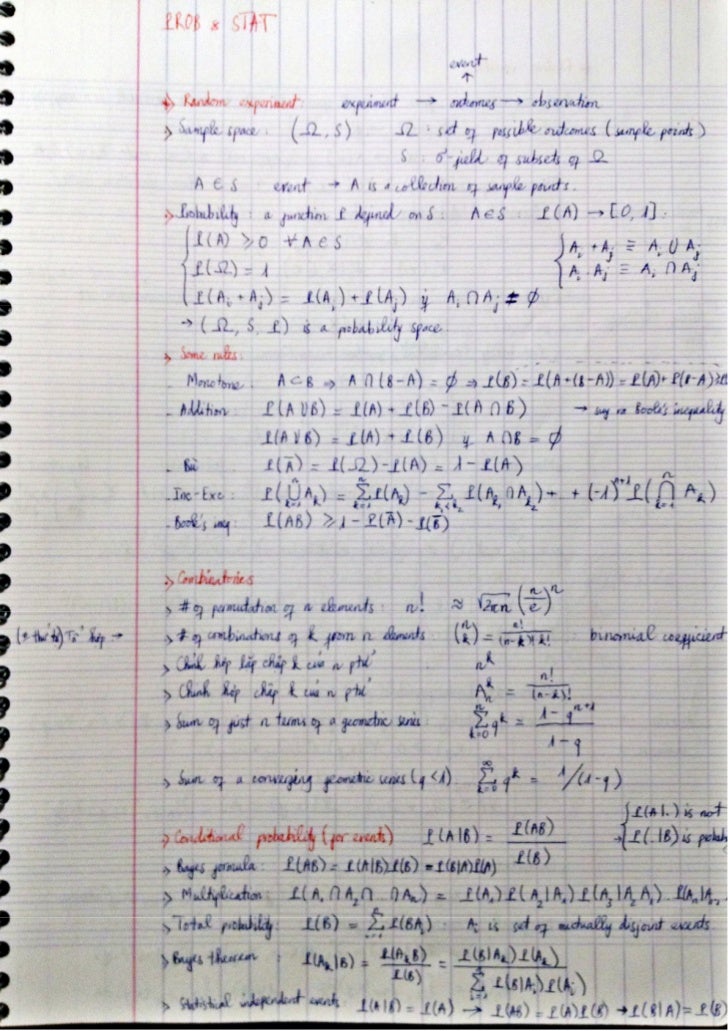 PROB & STAT
event
↑
> Random experiment: experiment → outcomes → observation
> Sample space: (Ω, S) Ω : set of possible outcomes (sample points)
S : σ-field of subsets of Ω
A ∈ S : event → A is a collection of sample points.
> Probability : a function P defined on S : A ∈ S : P(A) → [0, 1] :
P(A) ≥ 0 ∀ A ∈ S
A_i + A_j ≡ A_i ∪ A_j
P(Ω) = 1
A_i . A_j ≡ A_i ∩ A_j
P(A_i + A_j) = P(A_i) + P(A_j) if A_i ∩ A_j ≠ ∅
→ (Ω, S, P) is a probability space
> Some rules:
- Monotone : A ⊂ B ⇒ A ∩ (B - A) = ∅ ⇒ P(B) = P(A + (B - A)) = P(A) + P(B - A) ≥
- Addition : P(A ∪ B) = P(A) + P(B) - P(A ∩ B) → suy ra Boole's inequality
P(A ∪ B) = P(A) + P(B) if A ∩ B = ∅
- Bù P(Ā) = P(Ω) - P(A) = 1 - P(A)
- Inc-Exc : P(⋃_{k=1}^{n} A_k) = Σ_{k=1}^{n} P(A_k) - Σ_{k_1<k_2} P(A_{k_1} ∩ A_{k_2}) + . + (-1)^{n+1} P(⋂_{k=1}^{n} A_k)
- Boole's ineq : P(AB) ≥ 1 - P(Ā) - P(B̄)
> Combinatorics
> # of permutation of n elements : n! ≈ √2πn (n/e)^n
Tổ hợp →
> # of combinations of k from n elements : (n k) = n!/((n-k)! k!) : binomial coefficient
> Chỉnh hợp lặp chập k của n ptử n^k
> Chỉnh hợp chập k của n ptử A_n^k = n!/(n-k)!
> Sum of just n terms of a geometric series : Σ_{k=0}^{n} q^k = (1 - q^{n+1})/(1 - q)
> Sum of a converging geometric series (q < 1) Σ_{k=0}^{∞} q^k = 1/(1-q)
P(A|.) is not
> Conditional probability (for events) P(A|B) = P(AB)/P(B) → P(.|B) is
> Bayes formula : P(AB) = P(A|B)P(B) = P(B|A)P(A)
> Multiplication : P(A_1 ∩ A_2 ∩ . ∩ A_n) = P(A_1) P(A_2|A_1) P(A_3|A_2 A_1) .
> Total probability : P(B) = Σ_{i=1}^{n} P(BA_i) : A_i is set of mutually disjoint events
> Bayes theorem : P(A_k|B) = P(A_k B)/P(B) = P(B|A_k) P(A_k)/Σ_{i=1}^{n} P(B|A_i) P(A_i)
> Statistical independent events : P(A|B) = P(A) → P(AB) = P(A)P(B) → P(B|A) = P(B)